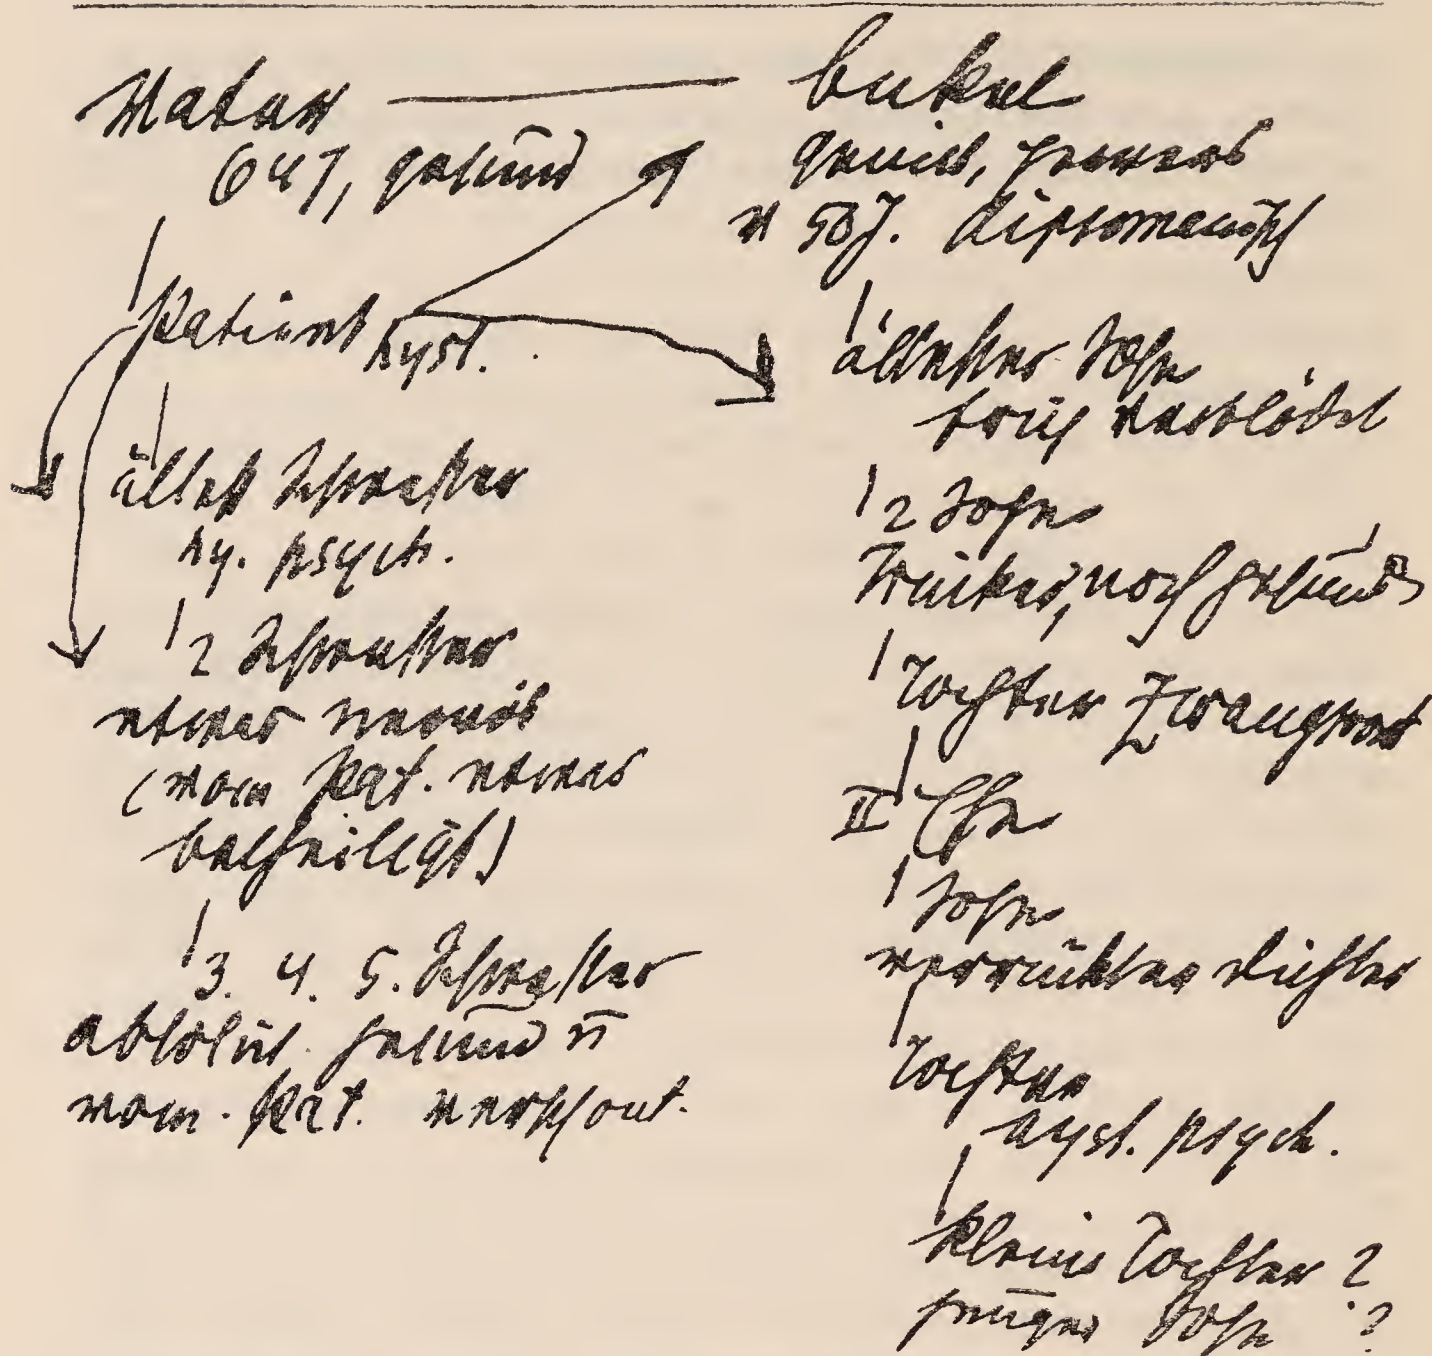 Vater
64 J, gesund
Patient hyst.
ältest Schwester
hy. psych.
2 Schwester
etwas nervös
(vom Pat. etwas
betheiligt)
3. 4. 5. Schwester
absolut gesund u
vom Pat. verschont.
Onkel
genial, pervers
v 50 J. dipsomanisch
ältester Sohn
früh verblödet
2 Sohn
Trinker, noch gesund
Tochter Zwangsvorst
II Ehe
Sohn
verrückter Dichter
Tochter
hyst. psych.
kleine Tochter ?
junger Sohn ?